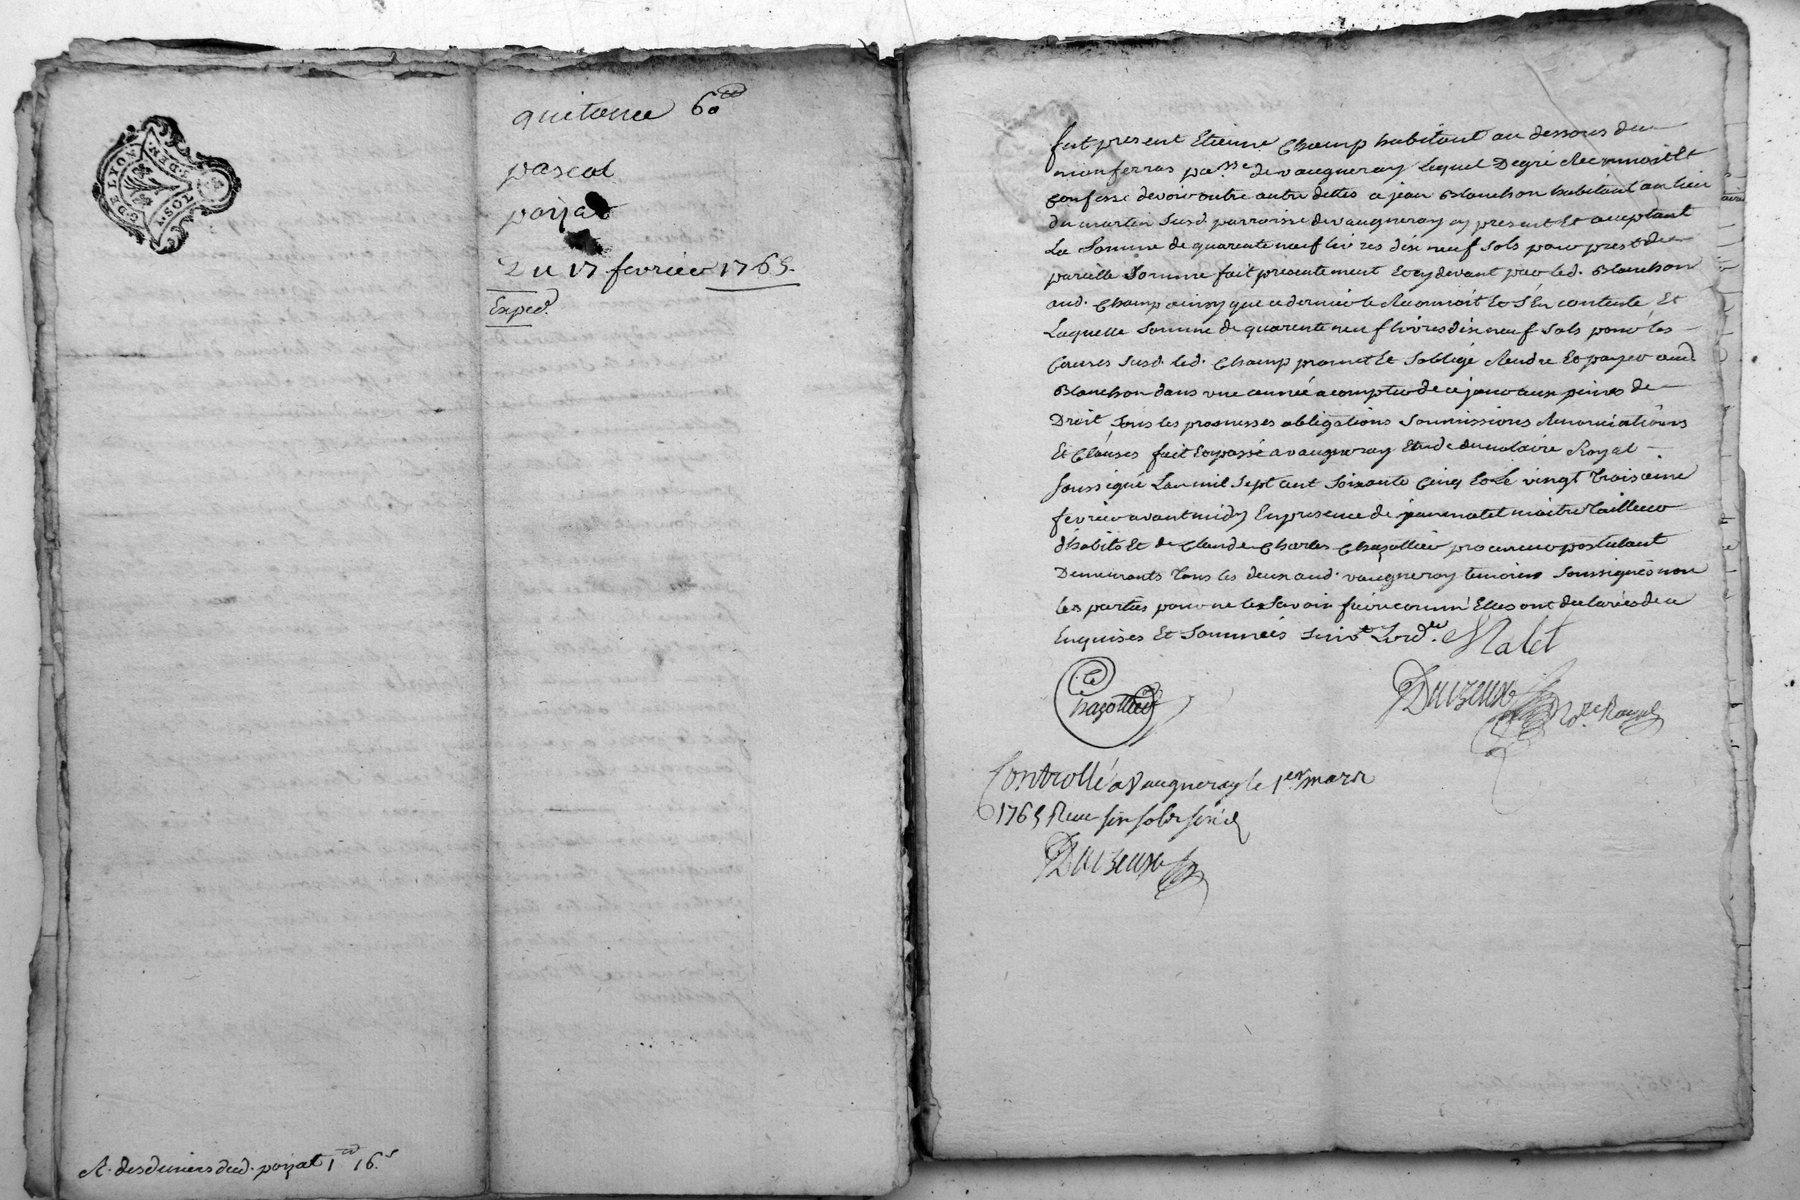 G. DE LYON
I. SOL
DEN.
quitance 60 ₶
pascal
poizat
Du 17 fevrier 1765.
Exped.
R. des deniers dud. poizat 1 ₶ 16 s
fut present Etienne Champ habitant au dessous du
monferras pa.sse de vaugneray lequel De gré Reconnoit Et
Confesse devoir outre autre dettes a jean Blanchon habitant au lieu
du martin susd. parroisse de vaugneray cy present Et acceptant
La Somme de quarente neuf livres dix neuf Sols pour prest de
pareille Somme fait presentement Et cy devant par led. Blanchon
aud. Champ ainsy que ce dernier le Reconnoit Et S'En contente Et
Laquelle Somme de quarente neuf livres dix neuf Sols pour les
Causes susd. led. Champ promet Et S'oblige Rendre Et payer aud.
Blanchon dans une année a compter de ce jour aux peines de
Droit, sous les promesses obligations Soumissions Renonciations
Et Clauses fait Et passé a vaugneray Etude du notaire Royal
Soussigné L'an mil Sept cent Soixante Cinq Et Le vingt Troisieme
fevrier avant midy En presence de jean matet maitre Tailleur
d'habits Et de Claude Charles Chazottier procureur postulant
Demeurants Tous les deux aud. vaugneray temoins Soussignés non
les parties pour ne le Savoir faire comm'Elles ont declarées de ce
Enquises Et Sommées suiv.t L'ord.ce Matet
Chazottier
Duizeux No.re Royal
Controllé a Vaugneray le 1er mars
1765 Reçu six sols six d
Duizeux